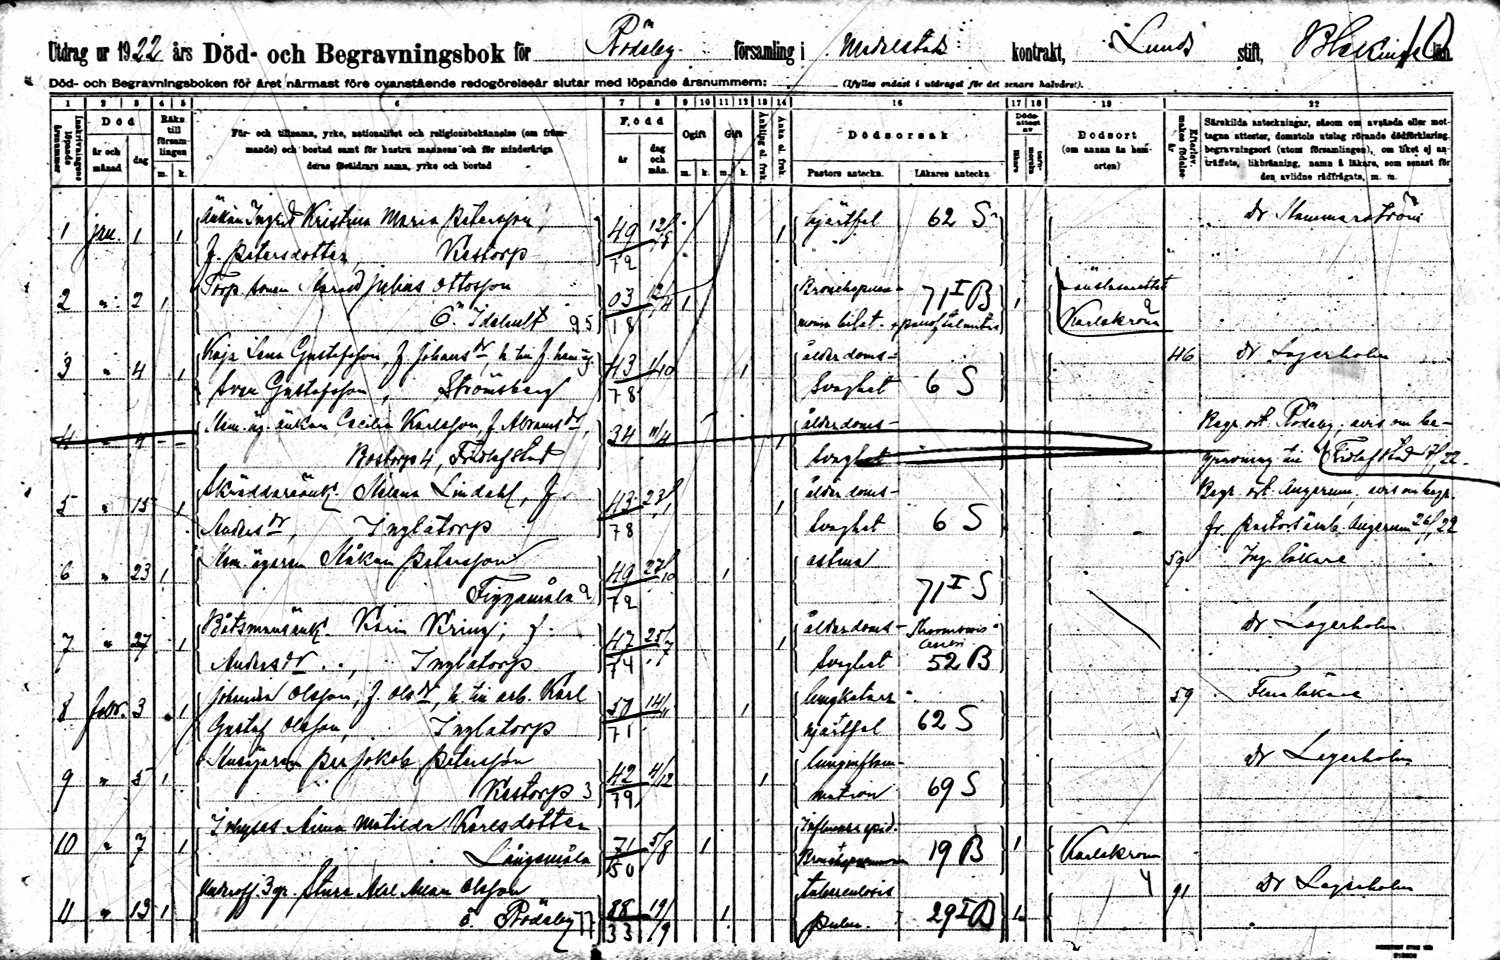 Utdrag ur 1922 års Död- och Begravningsbok för Rödeby församling i Medelstads kontrakt, Lunds stift, Blekinge län.
Död- och Begravningsboken för året närmast före ovanstående redogörelseår slutar med löpande årsnummern: (Ifylles endast i utdraget för det senare halvåret).
1 2 3 4 5 6 7 8 9 10 11 12 13 14 16 17 18 19 22
Inskrivningens löpande årsnummer
Död
år och månad
dag
Räknas till församlingen
m. k.
För- och tillnamn, yrke, nationalitet och religionsbekännelse (om främmande) och bostad samt för hustru mannens och för minderåriga
deras föräldrars namn, yrke och bostad
Född
år
dag och mån.
Ogift
m. k.
Gift
m. k.
Änkling el. frsk.
Änka el. frsk
Dödsorsak
Pastors anteckn. Läkares anteckn.
Dödsattest av
läkare
Dödsort
(om annan än hemorten)
Efterlev. makes födelseår
Särskilda anteckningar, såsom om avsända eller mottagna attester, domstols utslag rörande dödförklaring,
begravningsort (utom församlingen), om liket ej anträffats, likbränning, namn å läkare, som senast för
den avlidne rådfrågats, m. m.
1 jan. 1 1 Änkan Ingrid Kristina Maria Petersson, 49 12/5 1 hjärtfel 62 S Dr Hammarström
f. Petersdotter, Vestorp 72
2 " 2 1 Julius Ottosson 03 1 Bronchopneu- 71 I B 1 Lasarettet
Ö. Idehult 95 18 Karlskrona
3 " 4 1 Kajsa Lena Gustafsson, f. Johansdr, h. till f. hem.äg. 43 1/10 1 ålderdoms- 46 Dr Lagerholm
Sven Gustafsson, Strömsberg 78 svaghet 6 S
4 " 4 - - Hem.äg. änkan Cecilia Karlsson, f. Abramsdr, 34 11/4 1 ålderdoms- Begr. ort Rödeby, avis om be-
Bostorp 4, Fridlefstad svaghet
5 " 15 1 Skräddareänk. Helena Lindahl, f. 43 23/1 1 ålderdoms- Begr. ort Augerum, avis om begr.
Andersdr, Inglatorp 78 svaghet 6 S fr. pastorsämb. Augerum 26/1 22
6 " 23 1 Hem. ägaren Håkan Petersson 49 27/10 1 astma 71 I S 59 Ing. läkare
Figgamåla 2 72
7 " 27 1 Båtsmansänk. Karin Kring, f. 47 25/7 1 ålderdoms- Dr Lagerholm
Andersdr, Inglatorp 74 svaghet 52 B
8 febr. 3 1 Johanna Olsson, f. Olsdr, h. till arb. Karl 50 14/11 1 lungkatarr 59 Flera läkare
Gustaf Olsson, Inglatorp 71 hjärtfel 62 S
9 " 5 1 Husägaren Per Jakob Petersson 42 4/12 1 lunginflam- Dr Lagerholm
Vestorp 3 79 mation 69 S
10 " 7 1 Inhyses Anna Matilda Karlsdotter 71 5/8 1 Influensa epid. 19 B 1 Karlskrona
Långemåla 50 Bronchopneumonia
11 " 13 1 Olsson 88 19/9 1 tuberculosis 29 I B 1 91 Dr Lagerholm
Ö. Rödeby 17 33 pulm.